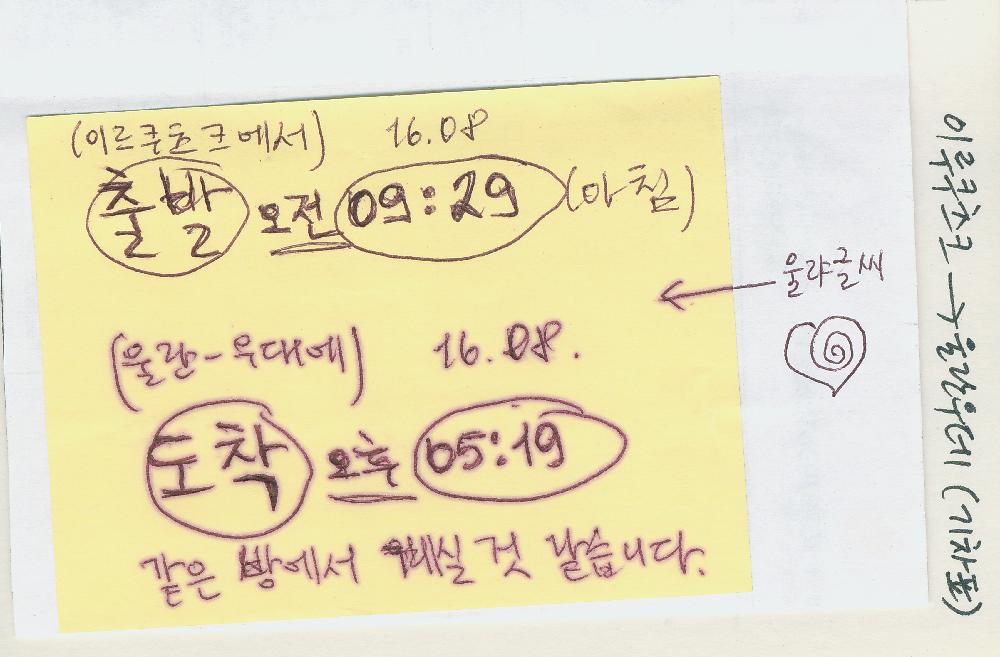 (이르쿠츠크에서) 16.08
출발 오전 09:29 (아침)
(울란-우대에) 16.08.
도착 오후 05:19
같은 방에서 계실 것 같습니다.
울랴글씨
이루쿠츠크 → 울란우데 (기차표)